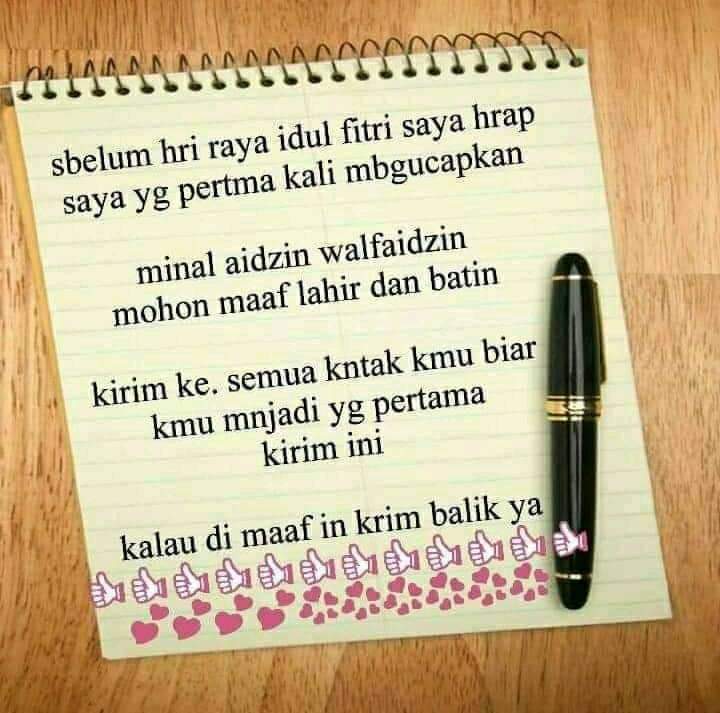 sbelum hri raya idul fitri saya hrap
saya yg pertma kali mbgucapkan
minal aidzin walfaidzin
mohon maaf lahir dan batin
kirim ke. semua kntak kmu biar
kmu mnjadi yg pertama
kirim ini
kalau di maaf in krim balik ya